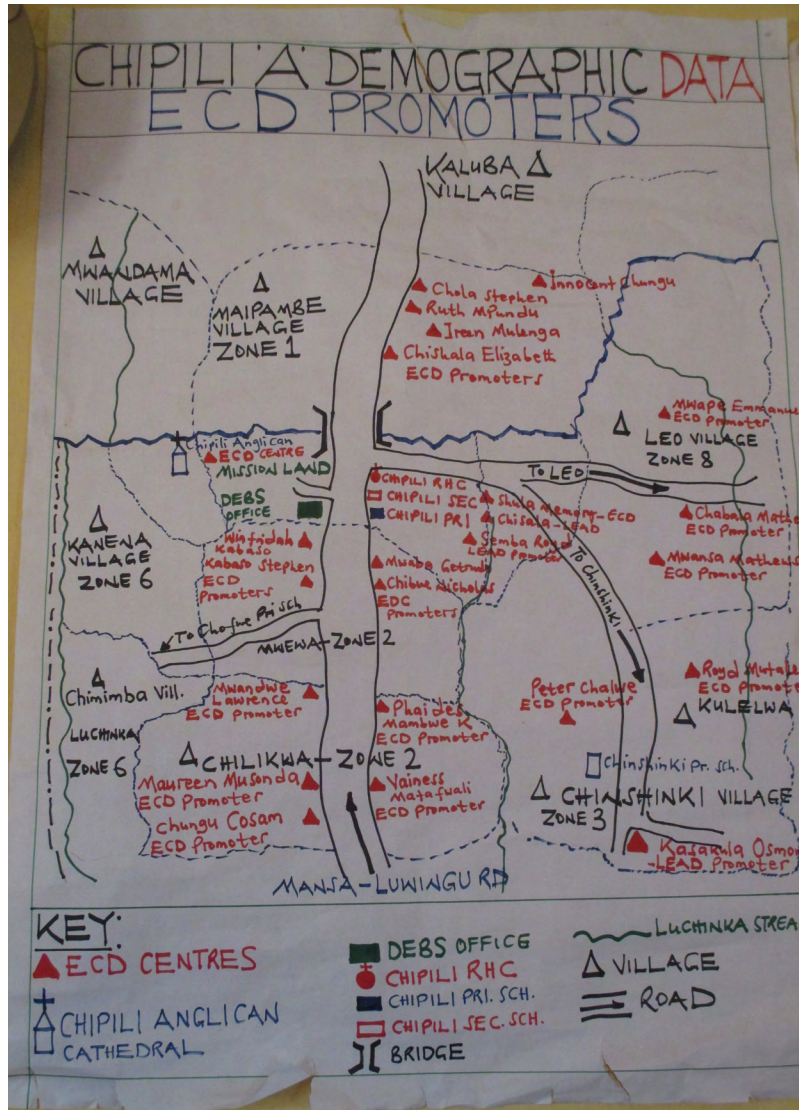 CHIPILI 'A' DEMOGRAPHIC DATA
ECD PROMOTERS
KALUBA
VILLAGE
MWANDAMA
VILLAGE
MAIPAMBE
VILLAGE
ZONE 1
Innocent Chungu
Chola Stephen
Ruth Mpundu
Ireen Mulenga
Chiskala Elizabett
ECD Promoters
Mwape Emmanue
ECD Promoter
LEO VILLAGE
ZONE 8
Chipili Anglican
ECD CENTRE
MISSION LAND
DEBS
OFFICE
CHIPILI RHC
CHIPILI SEC
CHIPILI PRI
TO LEO
Shula Memory-ECD
Chisala-LEAD
Semba Royd
LEAD Promoter
Chabala Mathe
ECD Promoter
Mwansa Mathews
ECD Promoter
KANENA
VILLAGE
ZONE 6
Winfridah
Kabaso
Kabaso Stephen
ECD
Promoters
Mwaba Getrude
Chibwe Nicholas
EDC
Promoters
To Chinshinki
To Chofwe Pri sch
MWEWA-ZONE 2
Chimimba Vill.
LUCHINKA
ZONE 6
Mwandwe
Lawrence
ECD Promoter
Phaides
Mambwe K
ECD Promoter
Peter Chalwe
ECD Promoter
Royd Mutale
ECD Promoter
KULELWA
CHILIKWA-ZONE 2
Maureen Musonda
ECD Promoter
Chungu Cosam
ECD Promoter
Vainess
Matafwali
ECD Promoter
Chinshinki Pr. sch.
CHINSHINKI VILLAGE
ZONE 3
Kasakula Osmon
-LEAD Promoter
MANSA-LUWINGU RD
KEY:
ECD CENTRES
CHIPILI ANGLICAN
CATHEDRAL
DEBS OFFICE
CHIPILI RHC
CHIPILI PRI. SCH.
CHIPILI SEC. SCH.
BRIDGE
LUCHINKA STREA
VILLAGE
ROAD